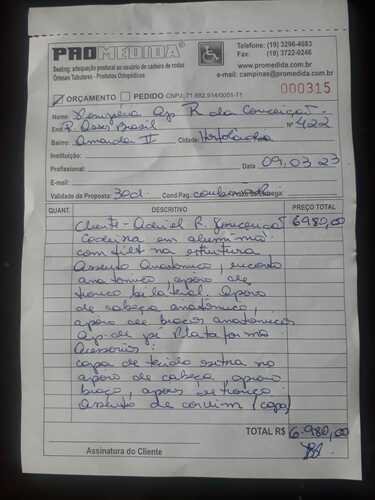 PROMEDIDA®
Seating: adequação postural ao usuário de cadeira de rodas
Órteses Tubulares - Produtos Ortopédicos
Telefone: (19) 3296-4683
Fax: (19) 3722-0246
www.promedida.com.br
e-mail: campinas@promedida.com.br
000315
ORÇAMENTO PEDIDO CNPJ: 71.882.914/0001-71
Nome: Ap R da Conceição
End R. Assis Brasil Nº 422
Bairro: Amanda II Cidade Hortolândia
Instituição:
Profissional: Data: 09.03.23
E-mail:
Validade da Proposta: 30d. Cond.Pag.
QUANT. DESCRITIVO PREÇO TOTAL
Cliente - Adriel R. 6980,00
Cadeira em alumínio
com tilt na estrutura
Assento Anatômico, encosto
anatômico, apoio de
tronco bilateral. Apoio
de cabeça anatômico,
apoio de braços anatômicos
Ap. de pé Plataforma
Acessórios:
capa de tecido extra no
apoio de cabeça, apoio
braço, apoio de tronco.
Assento de corvim (capa)
TOTAL R$ 6.980,00
Assinatura do Cliente